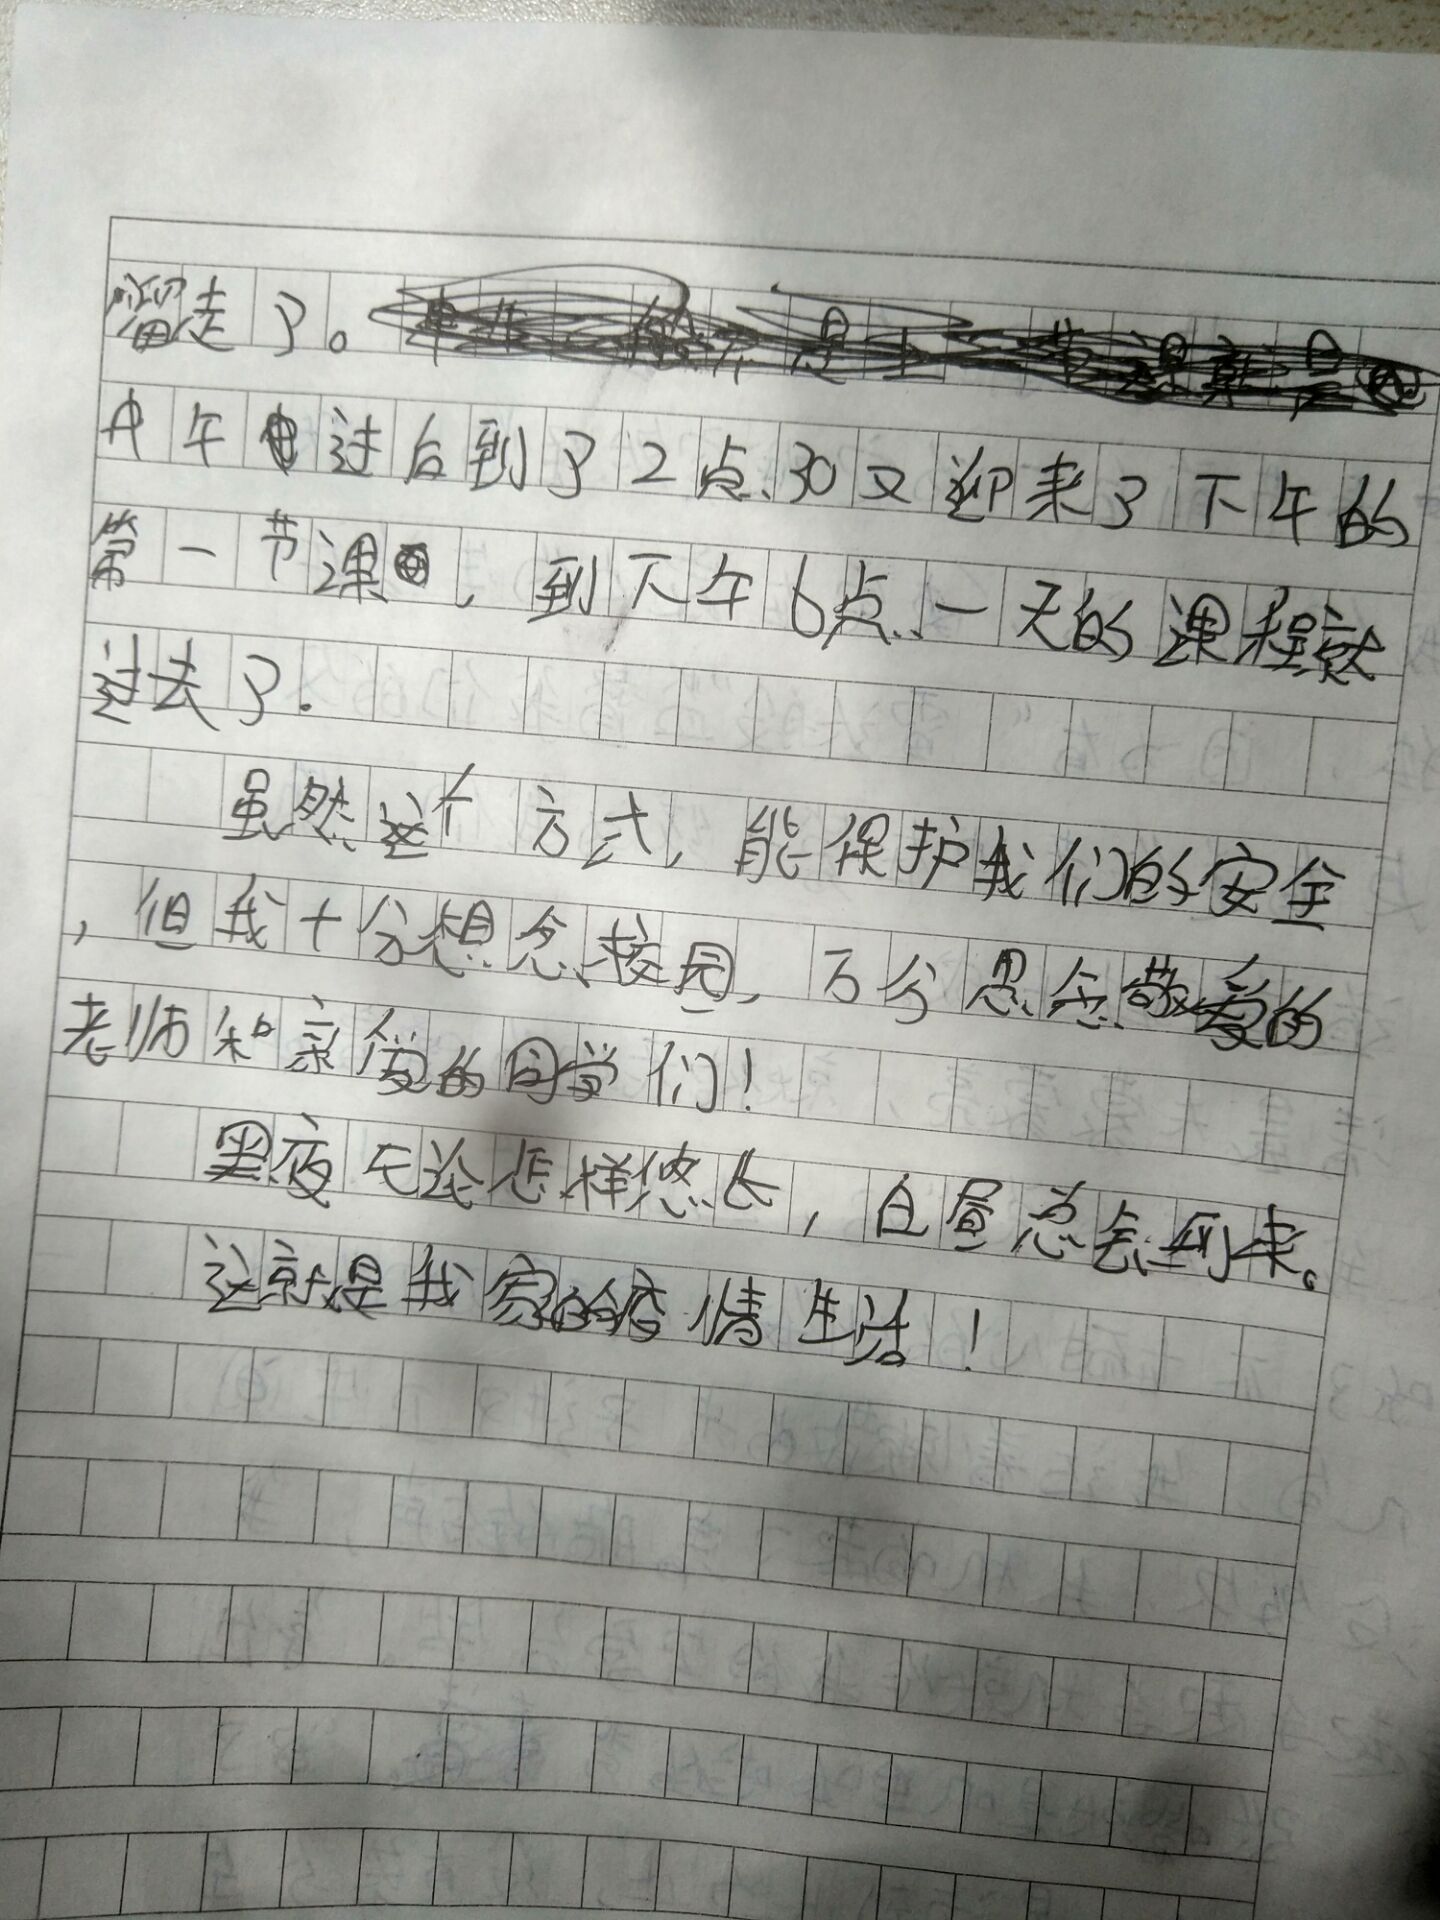 溜走了。
中午过后到了2点30又迎来了下午的
第一节课，到下午6点一天的课程就
过去了.
虽然这个方式，能保护我们的安全
，但我十分想念校园，万分思念敬爱的
老师和亲爱的同学们！
黑夜无论怎样悠长，白昼总会到来。
这就是我家的疫情生活！